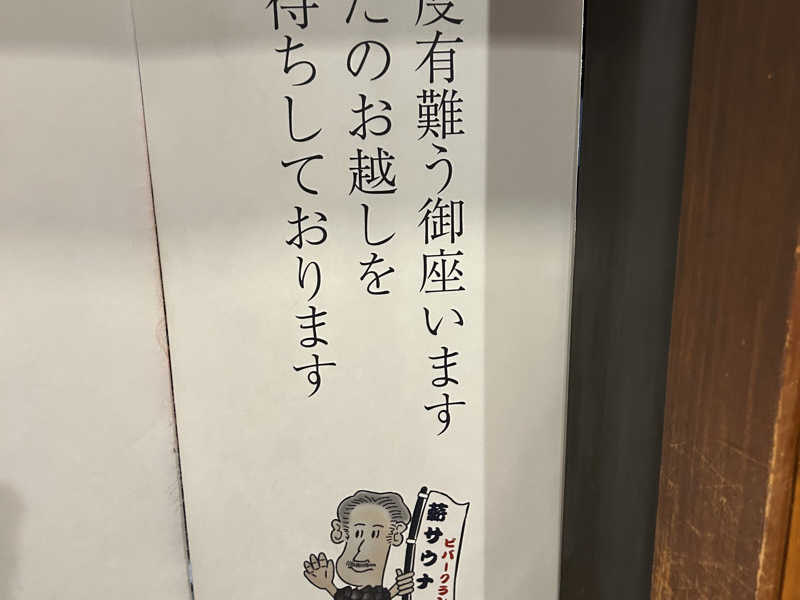 度有難う御座います
たのお越しを
待ちしております
薪サウナ
ビバークラン